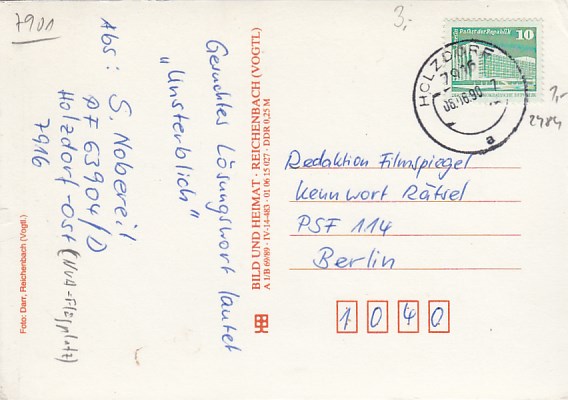 7901
3,-
Abs: S. Nobereil
PF 63904/D
Holzdorf-Ost (NVA-Flugplatz)
7916
Gesuchtes Lösungswort lautet
"Unsterblich"
Foto: Darr, Reichenbach (Vogtl.)
BILD UND HEIMAT · REICHENBACH (VOGTL)
A 1/B 69/89 · IV-14-483 · 01 06 15 027 · DDR 0,25 M
Palast der Republik
10
HOLZDORF
7916
06.06.90-7
a
1,-
2484
Redaktion Filmspiegel
Kennwort Rätsel
PSF 114
Berlin
1040